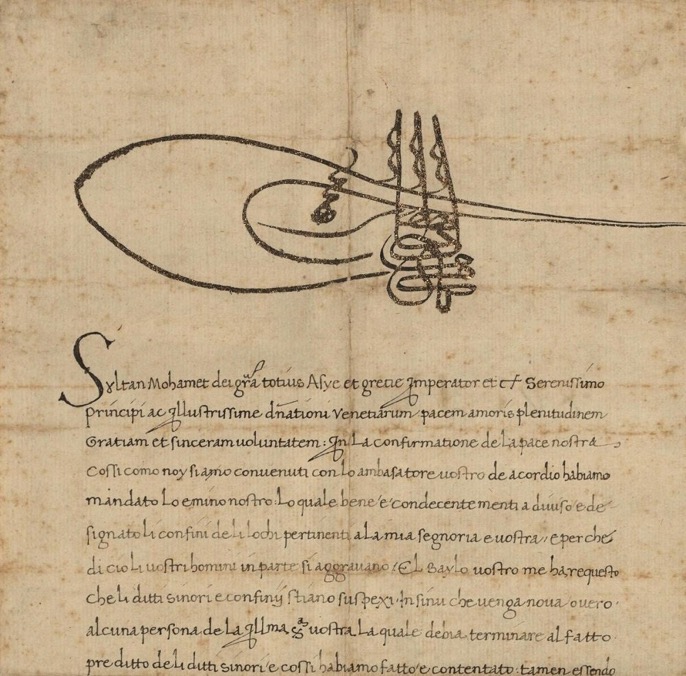 Syltan Mohamet dei gra totius Asye et gretie Imperator et c Serenissimo
principi ac Illustrissime dnationi Venetiarum pacem amoris plenitudinem
Gratiam et sinceram voluntatem: In La confirmatione de La pace nostra
Cossi como noy siamo convenuti con lo ambasatore vostro de acordio habiamo
mandato Lo emino nostro: Lo quale bene e condecente menti a diviso e de
signato li confini de li lochi pertinenti a la mia segnoria e vostra: e perche
di cio li vostri homini in parte si aggravano: El Baylo vostro me ha requesto
che li ditti sinori e confiny stiano suspexi: In sinu che venga nova overo
alcuna persona de La Illma Sa vostra La quale debia terminare al fatto
pre ditto de li ditti sinori e cossi habiamo fatto e contentato: tamen essendo